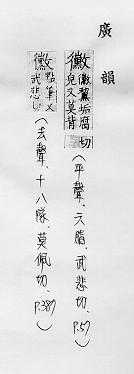 廣韻
黴 黴黧垢腐皃又莫背切（平聲．六脂．武悲切．P.57）
黴 點筆又武悲切（去聲．十八隊．莫佩切．P.389）